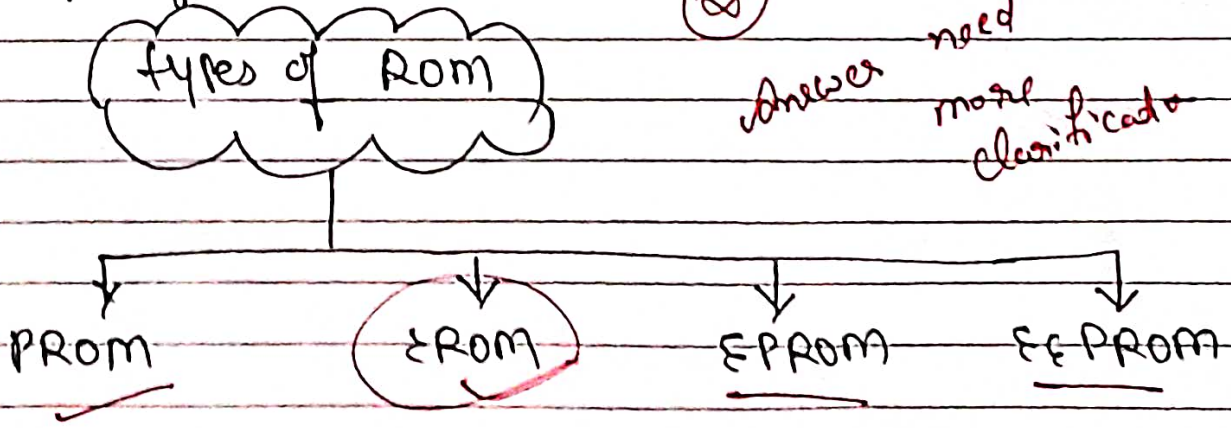 types of ROM
Answer need
more
clarificato
PROM EROM EPROM EEPROM